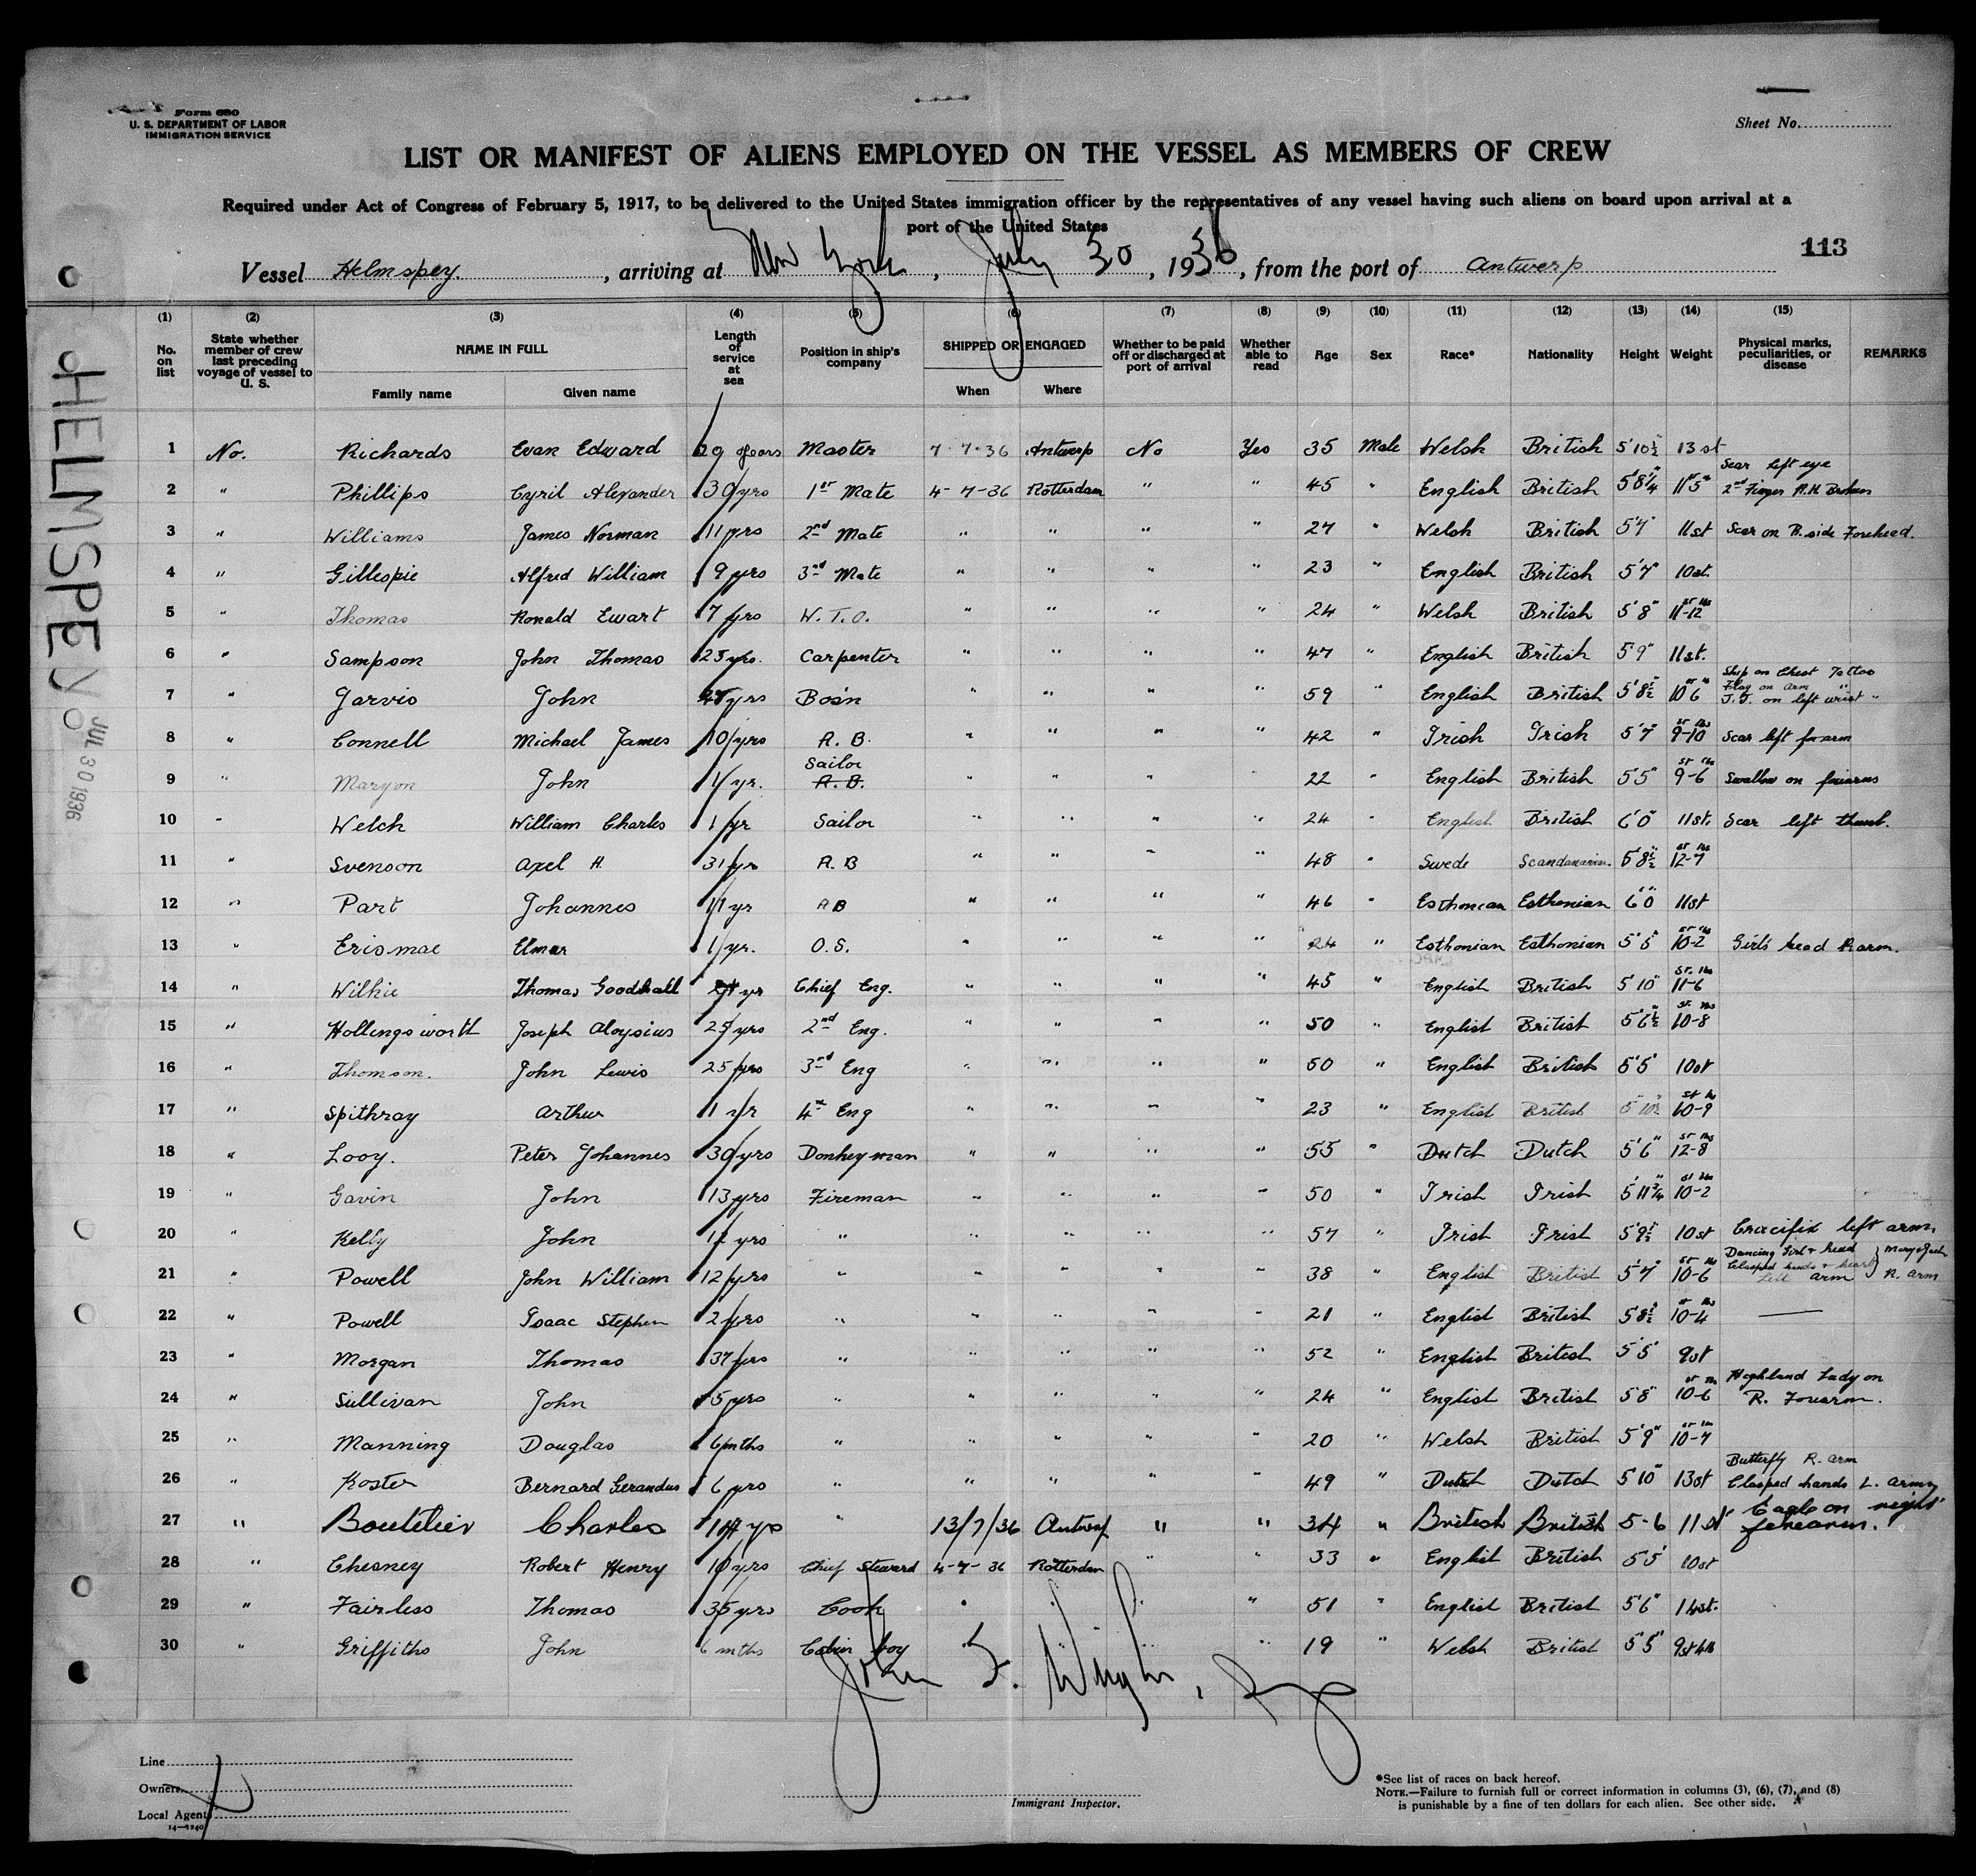 Form 680
U. S. DEPARTMENT OF LABOR
IMMIGRATION SERVICE
Sheet No.
LIST OR MANIFEST OF ALIENS EMPLOYED ON THE VESSEL AS MEMBERS OF CREW
Required under Act of Congress of February 5, 1917, to be delivered to the United States immigration officer by the representatives of any vessel having such aliens on board upon arrival at a
port of the United States
113
Vessel Helmspey. , arriving at New York , July 30 , 1936 , from the port of Antwerp
(1) (2) (3) (4) (5) (6) (7) (8) (9) (10) (11) (12) (13) (14) (15)
No. on list State whether member of crew last preceding voyage of vessel to U. S. NAME IN FULL Length of service at sea Position in ship's company SHIPPED OR ENGAGED Whether to be paid off or discharged at port of arrival Whether able to read Age Sex Race* Nationality Height Weight Physical marks, peculiarities, or disease REMARKS
Family name Given name When Where
HELMSPEY
JUL 30 1936
1 No. Richards Evan Edward 29 years Master 7-7-36 Antwerp No Yes 35 Male Welsh British 5'10½" 13 st
2 " Phillips Cyril Alexander 30 yrs 1st Mate 4-7-36 Rotterdam " " 45 " English British 5'8¼" 11 5 Scar left eye 2nd Finger R.H. Broken
3 " Williams James Norman 11 yrs 2nd Mate " " " " 27 " Welsh British 5'7" 11st Scar on R. side Forehead.
4 " Gillespie Alfred William 9 yrs 3rd Mate " " " " 23 " English British 5'7" 10st.
5 " Thomas Ronald Ewart 7 yrs W. T. O. " " " " 24 " Welsh British 5'8" 11-12
6 " Sampson John Thomas 25 yrs. Carpenter " " " " 47 " English British 5'9" 11st.
7 " Jarvis John yrs Bosn " " " " 59 " English British 5'8½" 10 6 Ship on Chest Tattoo Flag on arm " J.J. on left wrist "
8 " Connell Michael James 10 yrs A. B. " " " " 42 " Irish Irish 5'7" 9-10 Scar left forarm
9 " Maryon John 1 yr. Sailor A. B. " " " " 22 " English British 5'5" 9-6 Swallow on forearms
10 " Welch William Charles 1 yr Sailor " " " " 24 " English British 6'0" 11st. Scar left thumb.
11 " Svenson Axel H 31 yrs A. B " " " " 48 " Swede Scandanavian. 5'8½" 12-7
12 " Part Johannes 11 yr AB " " " " 46 " Esthonian Esthonian 6'0" 11st
13 " Erismae Elmar 1 yr. O. S. " " " " 24 " Esthonian Esthonian 5'5" 10-2 Girls head R arm.
14 " Wilkie Thomas Goodhall yr Chief Eng. " " " " 45 " English British 5'10" 11-6
15 " Hollingsworth Joseph Aloysius 25 yrs 2nd Eng. " " " " 50 " English British 5'6½" 10-8
16 " Thomson. John Lewis 25 yrs 3rd Eng " " " " 50 " English British 5'5" 10st
17 " Spithray Arthur 1 yr 4th Eng " " " " 23 " English British 5'10½ 10-9
18 " Looy. Peter Johannes 30 yrs Donkeyman " " " " 55 " Dutch Dutch 5'6" 12-8
19 " Gavin John 13 yrs Fireman " " " " 50 " Irish Irish 5'11¾" 10-2
20 " Kelly John 12 yrs " " " " " 57 " Irish Irish 5'9½" 10st Crucifix left arm
21 " Powell John William 12 yrs " " " " " 38 " English British 5'7" 10-6 Dancing Girl + head Clasped hands + heart Left arm } Mary + Jack R. arm
22 " Powell Isaac Stephen 2 yrs " " " " " 21 " English British 5'8½" 10-4 —
23 " Morgan Thomas 37 yrs " " " " " 52 " English British 5'5" 9st
24 " Sullivan John 5 yrs " " " " " 24 " English British 5'8" 10-6 Highland Lady on R. Fourarm.
25 " Manning Douglas 6 mths " " " " " 20 " Welsh British 5'9" 10-7
26 " Koster Bernard Gerandus 6 yrs " " " " " 49 " Dutch Dutch 5'10" 13st Butterfly R. arm Clasped hands L. arm
27 " Boutilier Charles yrs " 13/7/36 Antwerp " " 34 " British British 5-6 11 st Eagle on right forearm.
28 " Chesney Robert Henry 10 yrs Chief Steward 4-7-36 Rotterdam " " 33 " English British 5'5 10st
29 " Fairless Thomas 35 yrs Cook " " " " 51 " English British 5'6" 14st.
30 " Griffiths John 6 mths Cabin boy " " " " 19 " Welsh British 5'5" 9st 4lb
Line
Owners
Local Agent
14-1240
Immigrant Inspector.
*See list of races on back hereof.
NOTE.—Failure to furnish full or correct information in columns (3), (6), (7), and (8)
is punishable by a fine of ten dollars for each alien. See other side.